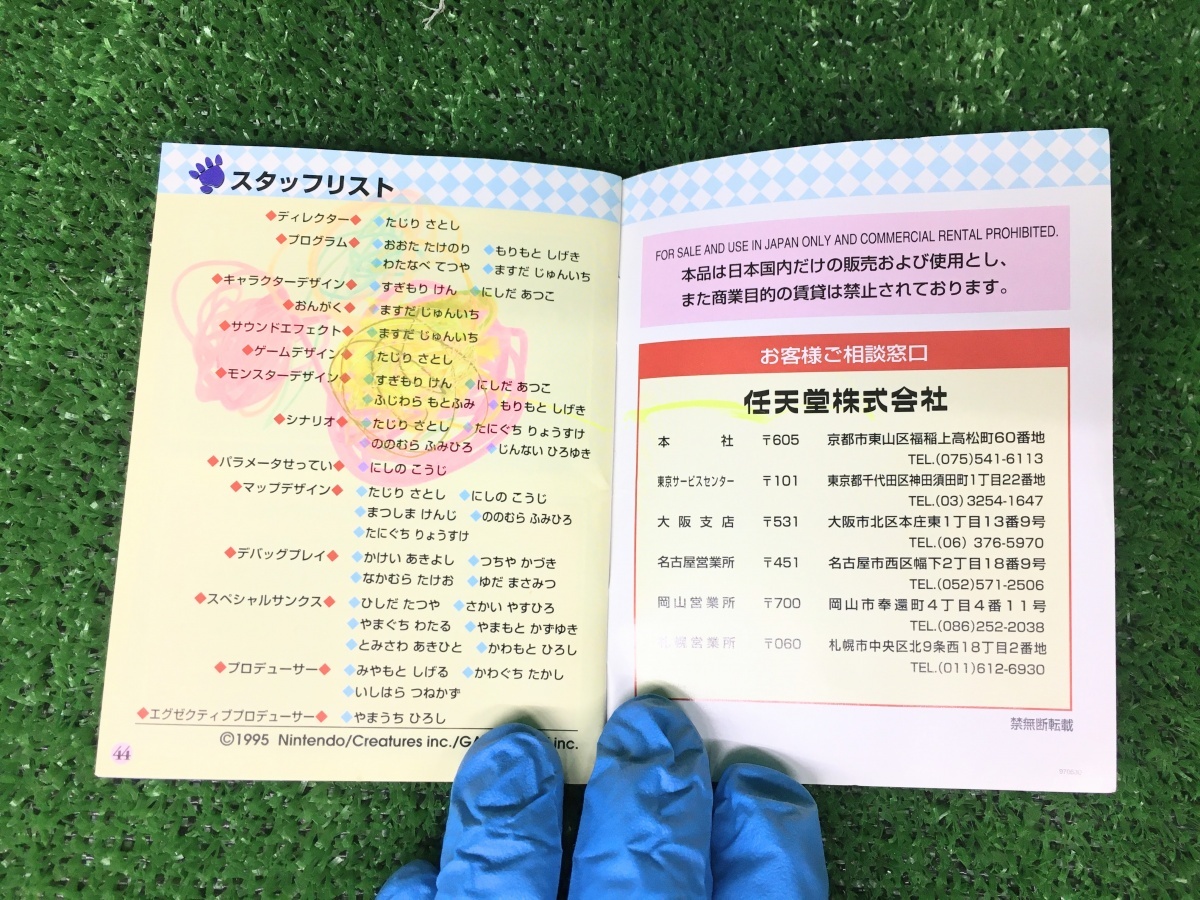 スタッフリスト
◆ディレクター◆ ◆たじり さとし
◆プログラム◆ ◆おおた たけのり ◆もりもと しげき
◆わたなべ てつや ◆ますだ じゅんいち
◆キャラクターデザイン◆ ◆すぎもり けん ◆にしだ あつこ
◆おんがく◆ ◆ますだ じゅんいち
◆サウンドエフェクト◆ ◆ますだ じゅんいち
◆ゲームデザイン◆ ◆たじり さとし
◆モンスターデザイン◆ ◆すぎもり けん ◆にしだ あつこ
◆ふじわら もとふみ ◆もりもと しげき
◆シナリオ◆ ◆たじり さとし ◆たにぐち りょうすけ
◆ののむら ふみひろ ◆じんない ひろゆき
◆パラメータせってい◆ ◆にしの こうじ
◆マップデザイン◆ ◆たじり さとし ◆にしの こうじ
◆まつしま けんじ ◆ののむら ふみひろ
◆たにぐち りょうすけ
◆デバッグプレイ◆ ◆かけい あきよし ◆つちや かづき
◆なかむら たけお ◆ゆだ まさみつ
◆スペシャルサンクス◆ ◆ひしだ たつや ◆さかい やすひろ
◆やまぐち わたる ◆やまもと かずゆき
◆とみさわ あきひと ◆かわもと ひろし
◆プロデューサー◆ ◆みやもと しげる ◆かわぐち たかし
◆いしはら つねかず
◆エグゼクティブプロデューサー◆ ◆やまうち ひろし
©1995 Nintendo/Creatures inc./GA inc.
44
FOR SALE AND USE IN JAPAN ONLY AND COMMERCIAL RENTAL PROHIBITED.
本品は日本国内だけの販売および使用とし、
また商業目的の賃貸は禁止されております。
お客様ご相談窓口
任天堂株式会社
本社 〒605 京都市東山区福稲上高松町60番地
TEL.(075)541-6113
東京サービスセンター 〒101 東京都千代田区神田須田町1丁目22番地
TEL.(03)3254-1647
大阪支店 〒531 大阪市北区本庄東1丁目13番9号
TEL.(06) 376-5970
名古屋営業所 〒451 名古屋市西区幅下2丁目18番9号
TEL.(052)571-2506
岡山営業所 〒700 岡山市奉還町4丁目4番11号
TEL.(086)252-2038
札幌営業所 〒060 札幌市中央区北9条西18丁目2番地
TEL.(011)612-6930
禁無断転載